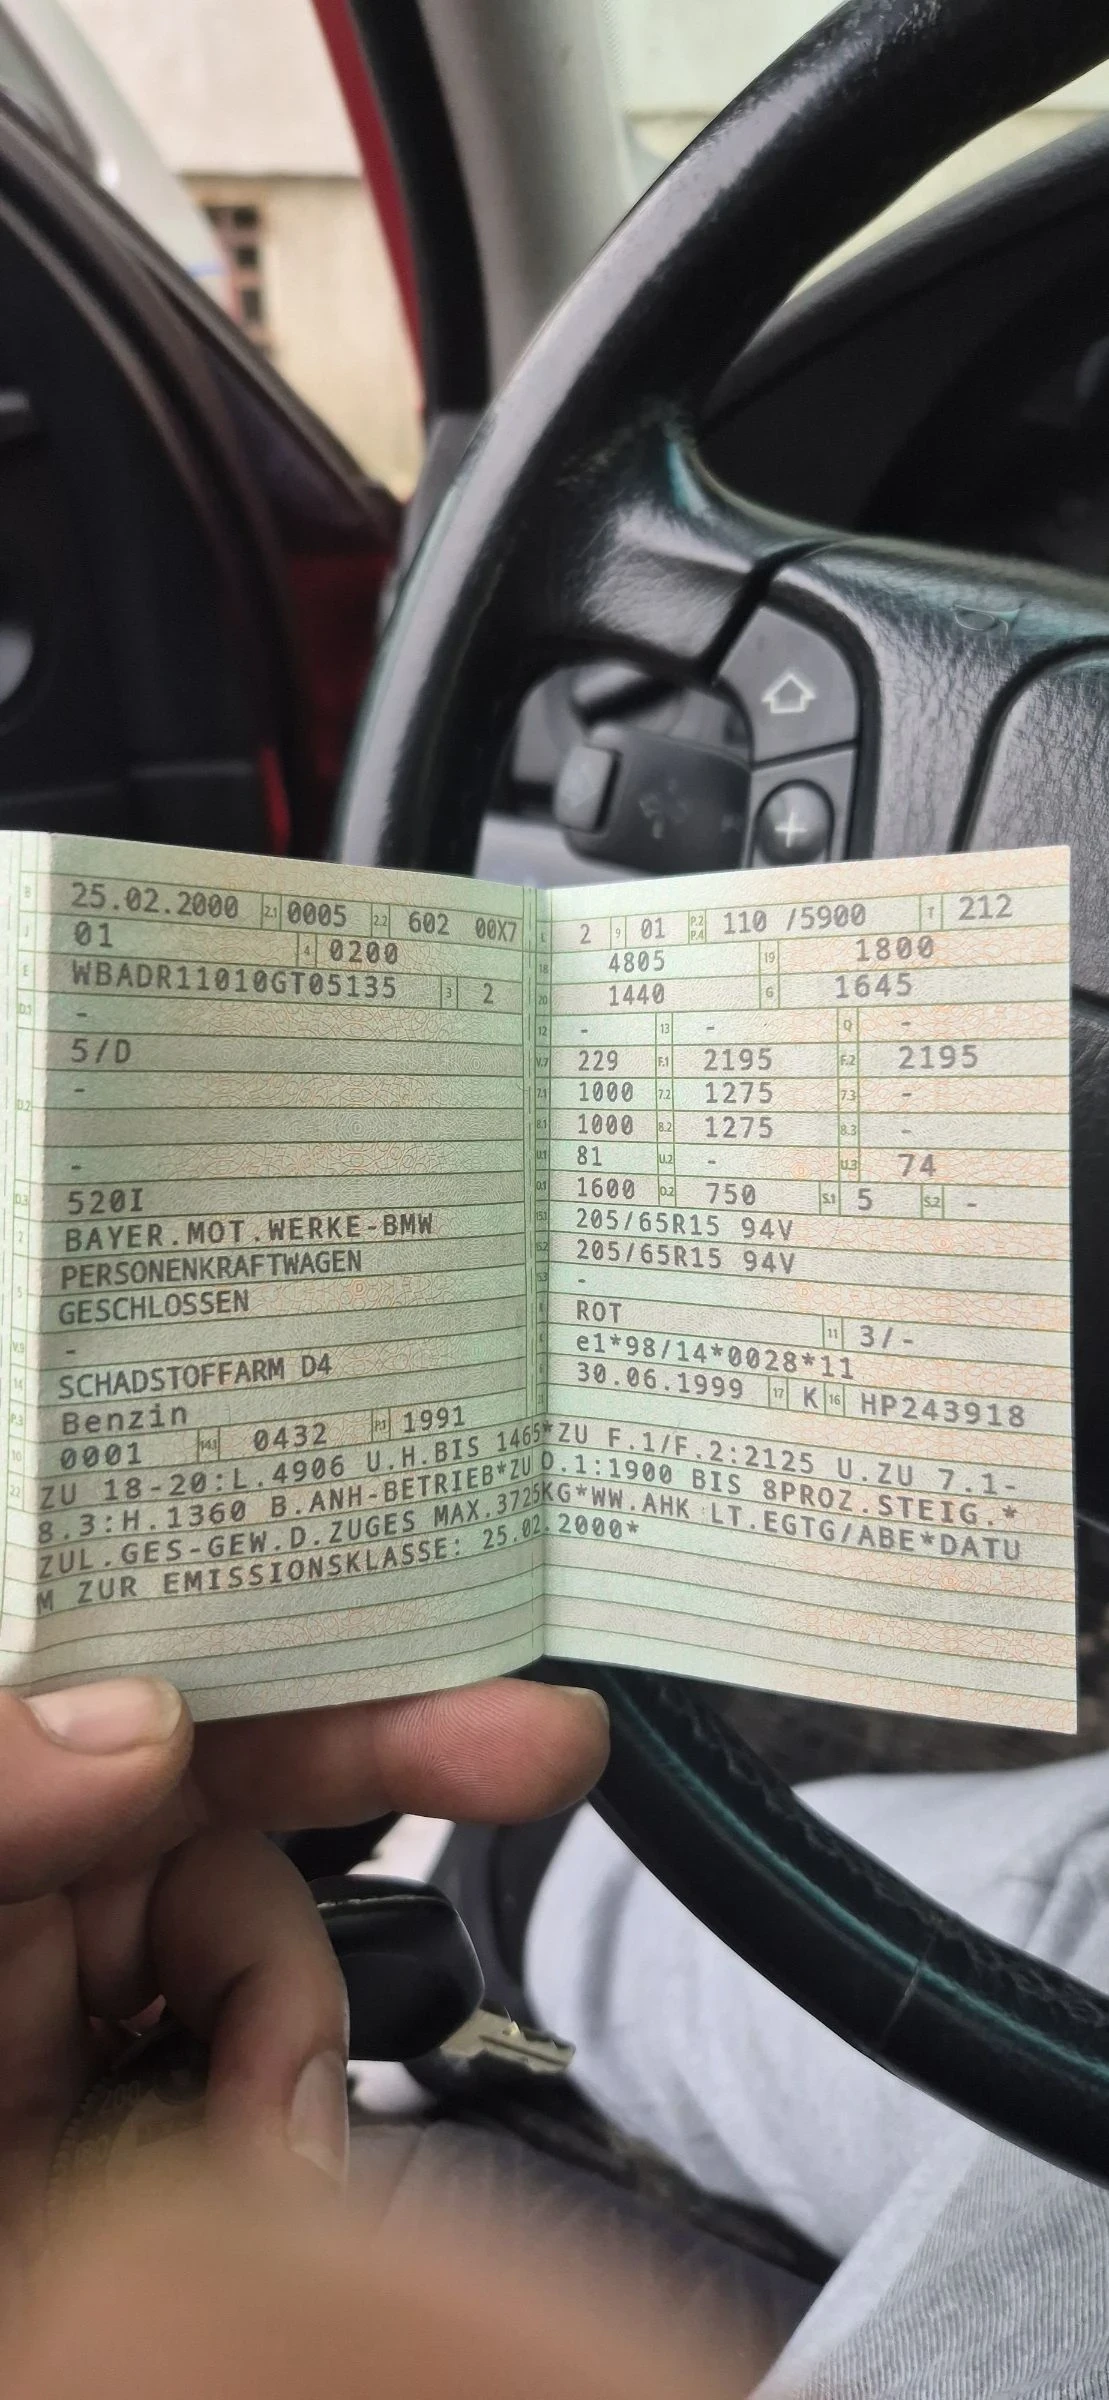 B 25.02.2000 2.1 0005 2.2 602 00X7
J 01 4 0200
E WBADR11010GT05135 3 2
D.1 -
5/D
D.2 -
-
D.3 520I
2 BAYER.MOT.WERKE-BMW
5 PERSONENKRAFTWAGEN
GESCHLOSSEN
V.9 -
14 SCHADSTOFFARM D4
P.3 Benzin
10 0001 14.1 0432 P.1 1991
L 2 9 01 P.2 P.4 110 /5900 T 212
18 4805 19 1800
20 1440 G 1645
12 - 13 - Q -
V.7 229 F.1 2195 F.2 2195
7.1 1000 7.2 1275 7.3 -
8.1 1000 8.2 1275 8.3 -
U.1 81 U.2 - U.3 74
O.1 1600 O.2 750 S.1 5 S.2 -
15.1 205/65R15 94V
15.2 205/65R15 94V
15.3 -
R ROT 11 3/-
K e1*98/14*0028*11
6 30.06.1999 17 K 16 HP243918
22 ZU 18-20:L.4906 U.H.BIS 1465*ZU F.1/F.2:2125 U.ZU 7.1-
8.3:H.1360 B.ANH-BETRIEB*ZU O.1:1900 BIS 8PROZ.STEIG.*
ZUL.GES-GEW.D.ZUGES MAX.3725KG*WW.AHK LT.EGTG/ABE*DATU
M ZUR EMISSIONSKLASSE: 25.02.2000*